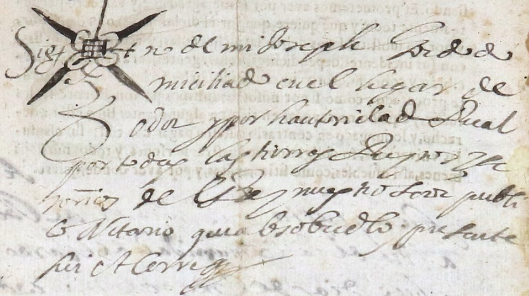 Sig+no de mi Joseph Gord do
miciliado en el lugar de
y por hautoridad Real
por todas las tierras Reynos y Se
ñorios de el Rey nuestro Señor publi
co Notario que a lo sobredho presente
fui et Cerre